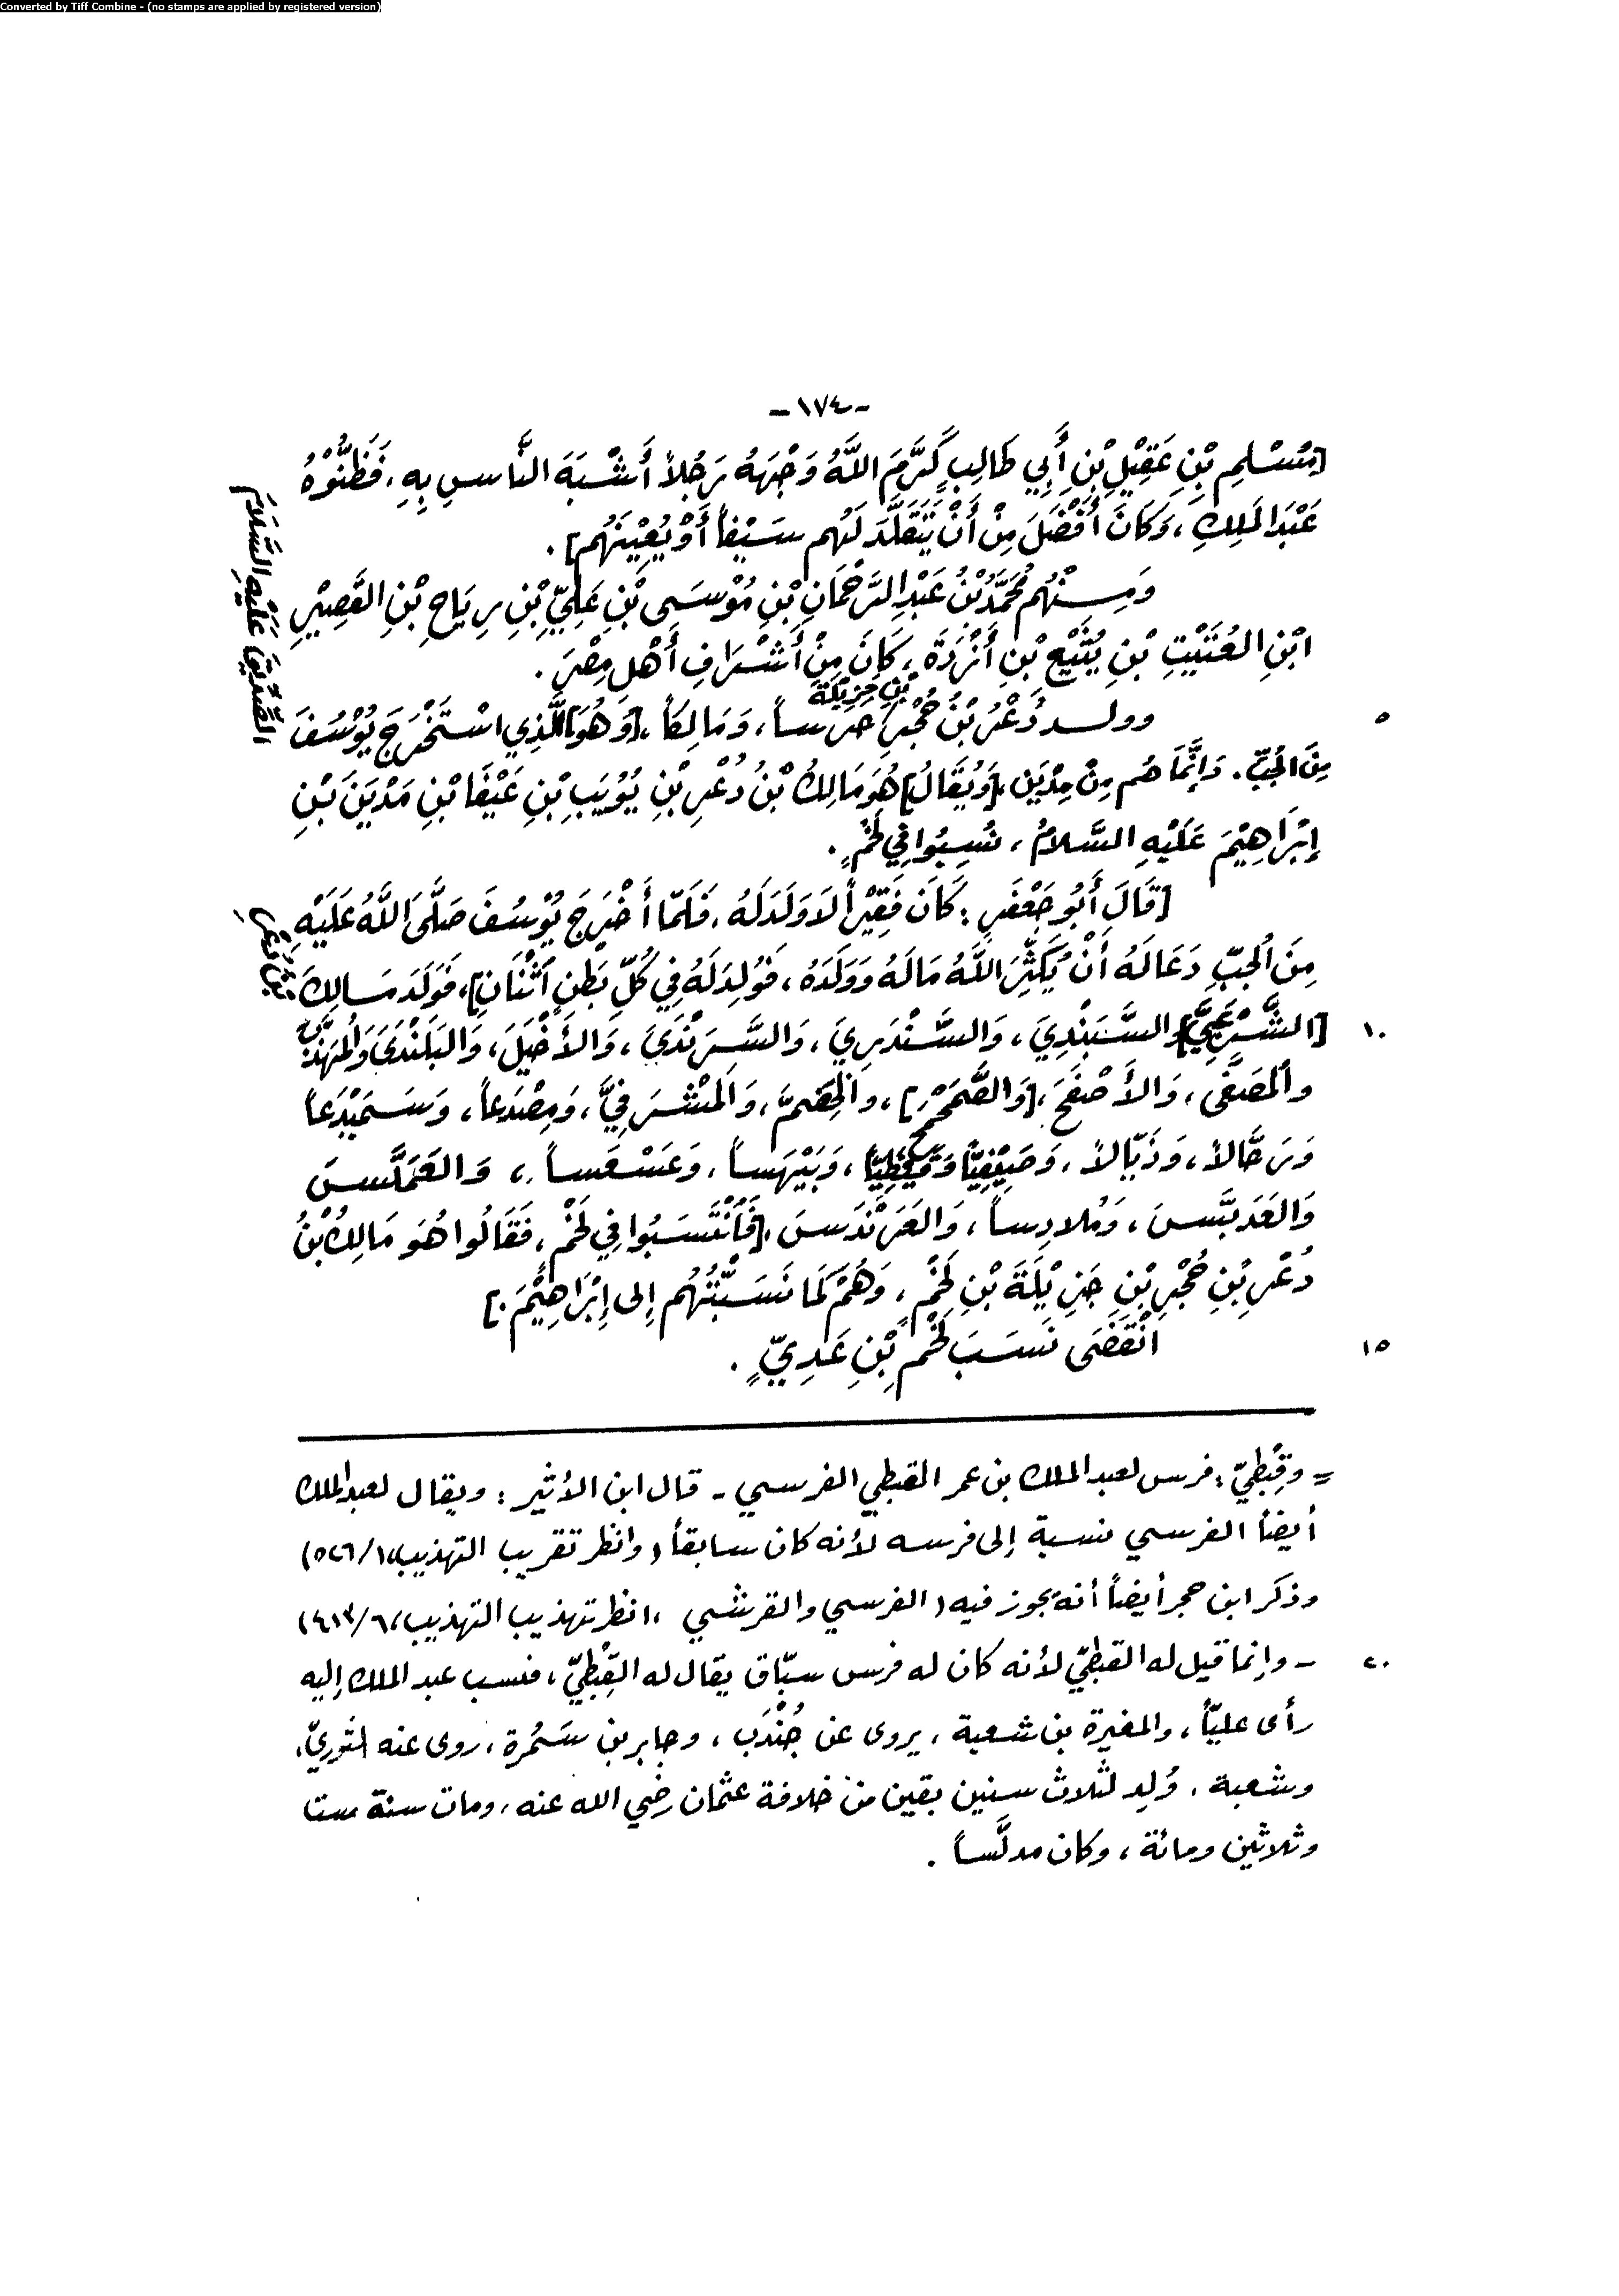 Converted by Tiff Combine - (no stamps are applied by registered version)
-١٧٤-
[مُسْلِمِ بْنِ عَقِيْلِ بْنِ أَبِي طَالِبٍ كَرَّمَ اللَّهُ وَجْهَهُ رَجُلاً أَشْبَهَ النَّاسِ بِهِ، فَظَنُّوْهُ
عَبْدَ المَلِكِ، وَكَانَ أَفْضَلَ مِنْ أَنْ يَتَقَلَّدَ لَهُم سَيْفاً أَوْ يُعِيْنَهُم].
وَمِنْهُم مُحَمَّدُ بْنُ عَبْدِ الرَّحْمَانِ بْنِ مُوْسَى بْنِ عَلِيِّ بْنِ رِيَاحِ بْنِ القَصِيْرِ
ابْنِ العُتَيْتِ بْنِ يُثَيْعِ بْنِ أَزْدَةَ، كَانَ مِنْ أَشْرَافِ أَهْلِ مِصْرَ.
٥ وولـد دُعْرُ بْنُ حُجْرِ بْنِ جَزِيْلَةَ حرساً، وَمَالِكاً، [وَهُوَ] الَّذِي اسْتَخْرَجَ يُوْسُفَ
الصِّدِّيْقَ عَلَيْهِ السَّلَامُ
مِنَ الجُبِّ. وَإِنَّمَا هُم مِنْ مِدْيَن، [وَيُقَالُ] هُوَ مَالِكُ بْنُ دُعْرِ بْنِ يُوْيَبِ بْنِ عَيْفَا بْنِ مَدْيَنَ بْنِ
إِبْرَاهِيْمَ عَلَيْهِ السَّلَامُ، نُسِبُوا فِي لَخْمٍ.
[قَالَ أَبُو جَعْفَرٍ: كَانَ فَقِيْراً لَا وَلَدَ لَهُ، فَلَمّا أَخْرَجَ يُوْسُفَ صَلَّى اللَّهُ عَلَيْهِ
مِنَ الجُبِّ دَعَا لَهُ أَنْ يُكَثِّرَ اللَّهُ مَالَهُ وَوَلَدَهُ، فَوُلِدَ لَهُ فِي كُلِّ بَطْنٍ اثْنَانِ]، فَوَلَدَ مَالِكُ
بْنُ دُعْرٍ
١٠ [الشَّرْعَبِيَّ] والسَّبَنْدِيَ، وَالسَّنْدَرِيَ، وَالسَّرَنْدَىَ، وَالأَخْيَلَ، وَالبَلَنْدَى وَالمُهَنَّدَ
والمُصَفَّى، وَالأَصْفَحَ، [وَالصَّمَحْمَحَ]، والخِضَمَّ، وَالمَشْرَفِيَّ، وَمِصْدَعاً، وَسَمَيْدَعاً
وَرَحَّالاً، وَذَيّالاً، وَصَيْفِيّاً وَقَيْظِيّاً، وَبَيْهَساً، وَعَسْعَساً، وَالعَمَلَّسَ
وَالعَدَبَّسَ، وَمُلادِساً، وَالعَرَنْدَسَ، [فَانْتَسَبُوا فِي لَخْمٍ، فَقَالُوا هُوَ مَالِكُ بْنُ
دُعْرِ بْنِ حُجْرِ بْنِ جَزِيْلَةَ بْنِ لَخْمٍ، وَهُمْ كَمَا نَسَبْتُهُم إِلى إِبْرَاهِيْمَ.]
١٥ انْقَضَى نَسَبَ لَخْمِ بْنِ عَدِيٍّ.
= وقِبْطِيّ: فرس لعبد الملك بن عمر القبطي الفرسي - قال ابن الأثير: ويقال لعبد الملك
أيضاً الفرسي نسبة إلى فرسه لأنه كان سابقاً (وانظر تقريب التهذيب، ١/٥٢٦)
وذكر ابن حجر أيضاً أنه يجوز فيه (الفرسي والقرشي، انظر تهذيب التهذيب، ٦/٤١٣)
٢٠ - وإنما قيل له القبطيّ لأنه كان له فرس سبّاق يقال له القِبْطِيّ، فنسب عبد الملك إليه
رأى عليّاً، والمغيرة بن شعبة، يروى عن جُنْدَب، وجابر بن سَمُرة، روى عنه الثوريّ،
وشعبة. وُلِد لثلاث سنين بقين من خلافة عثمان رضي الله عنه، ومات سنة ستا
وثلاثين ومائة، وكان مدلَّساً.